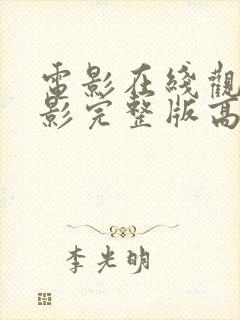 電影在綫觀
影完整版高
李光明